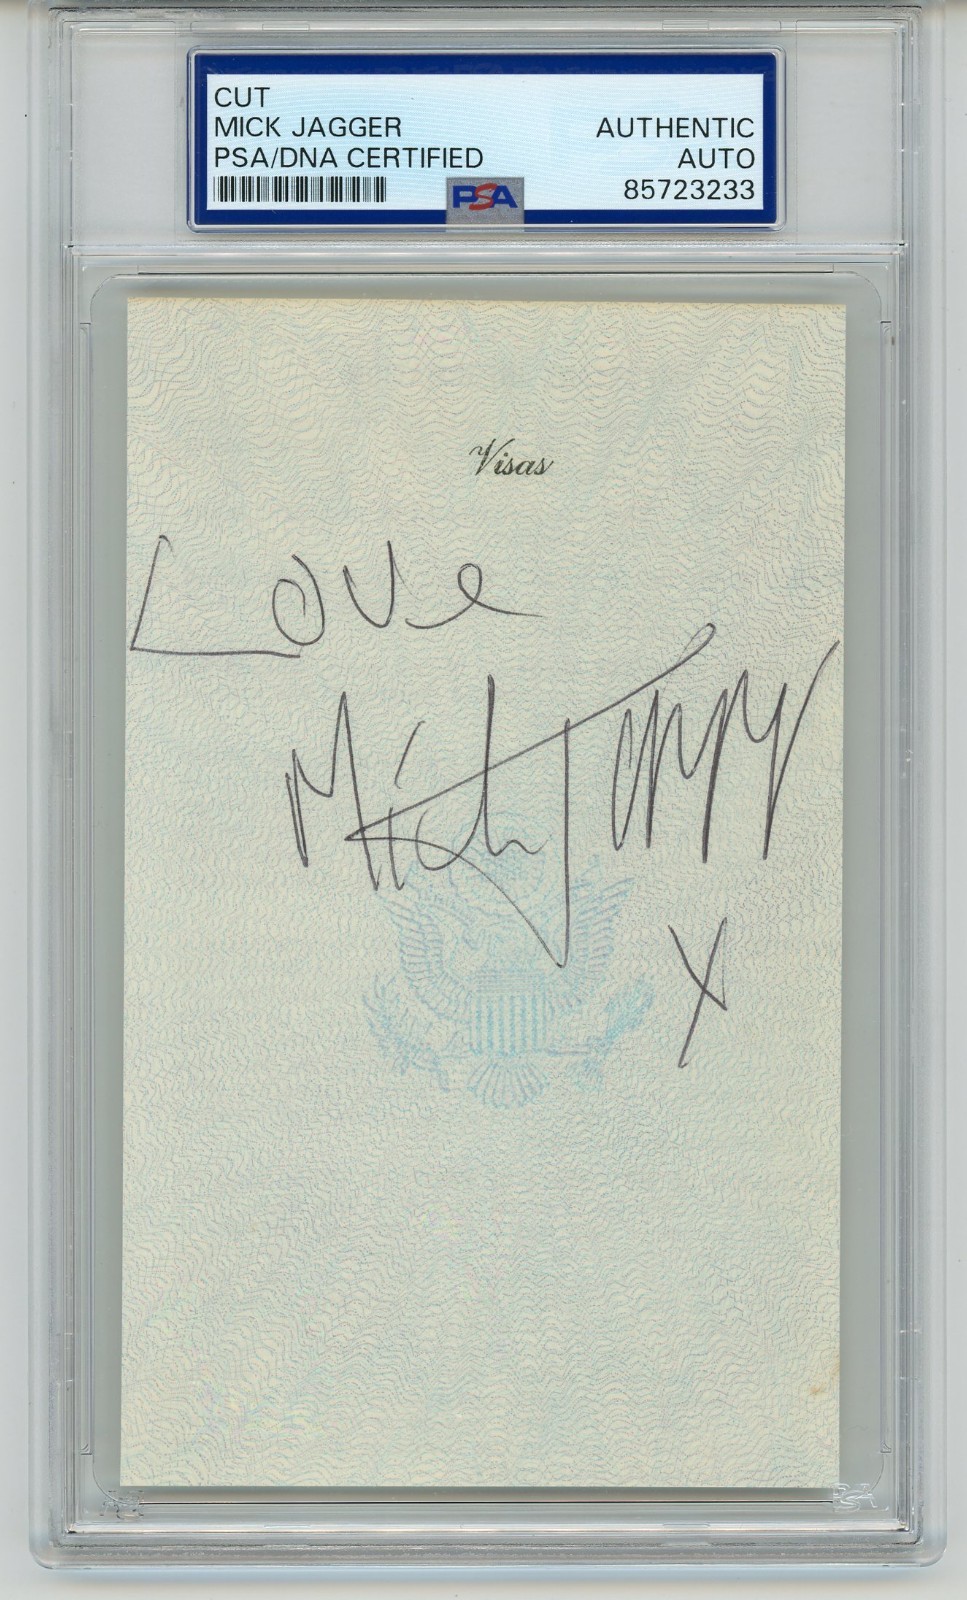 CUT
MICK JAGGER
PSA/DNA CERTIFIED
AUTHENTIC
AUTO
85723233
PSA
Visas
Love
Mick Jagger
X
PSA